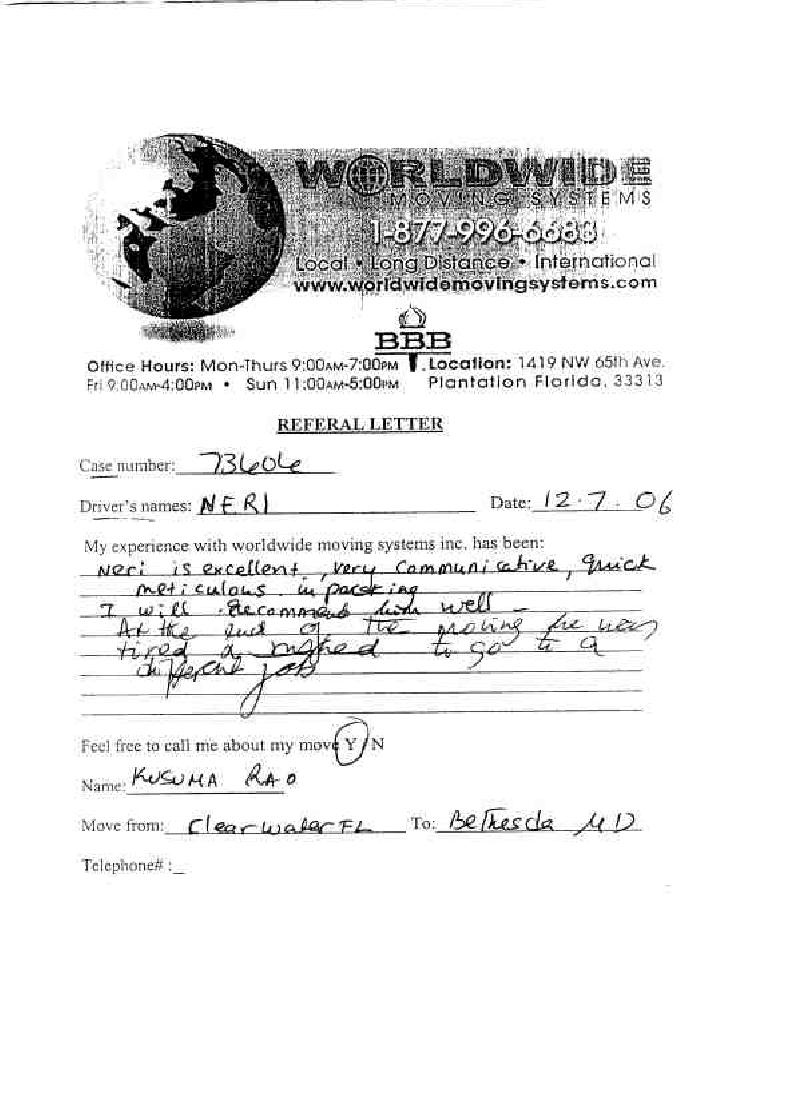 WORLDWIDE
MOVING SYSTEMS
1-877-996-6683
Local • Long Distance • International
www.worldwidemovingsystems.com
BBB
Office Hours: Mon-Thurs 9:00AM-7:00PM Location: 1419 NW 65th Ave.
Fri 9:00AM-4:00PM • Sun 11:00AM-5:00PM Plantation Florida, 33313
REFERAL LETTER
Case number: 73606
Driver's names: NERI Date: 12.7.06
My experience with worldwide moving systems inc. has been:
Neri is excellent, very communicative, quick
meticulous in packing
I will recommend him well
At the end of the moving he was
tired & rushed to go to a
different job
Feel free to call me about my move Y/N
Name: KUSUMA RAO
Move from: Clearwater FL To: Bethesda MD
Telephone# :